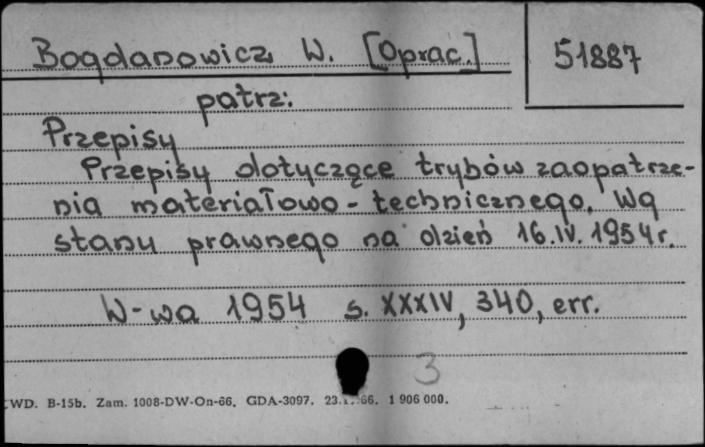 Bogdanowicz W. [Oprac.]
51887
patrz:
Przepisy
Przepisy dotyczące trybów zaopatrze-
nia materiałowo-technicznego. Wg
stanu prawnego na dzień 16.IV.1954r.
W-wa 1954 s. XXXIV, 340, err.
3
WD. B-15b. Zam. 1008-DW-On-66. GDA-3097. 66. 1 906 000.